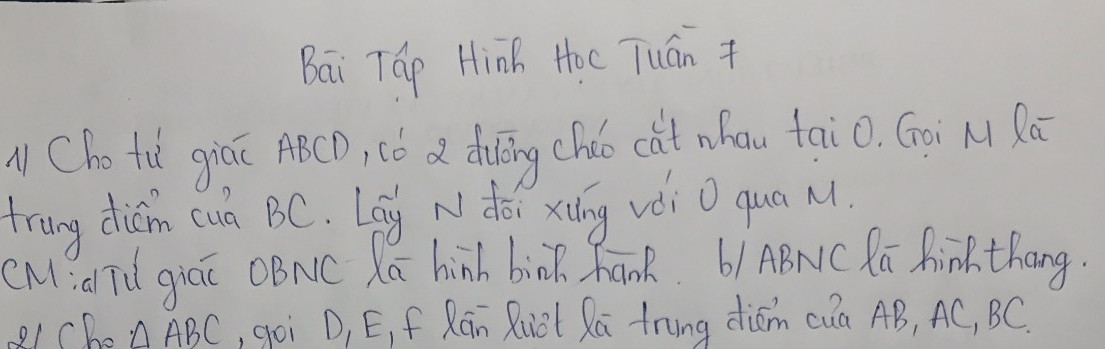 Bài Tập Hình Học Tuần 7
1) Cho tứ giác ABCD, có 2 đường chéo cắt nhau tại O. Gọi M là
trung điểm của BC. Lấy N đối xứng với O qua M.
CM: a/ Tứ giác OBNC là hình bình hành. b/ ABNC là hình thang.
2/ Cho Δ ABC, gọi D, E, F lần lượt là trung điểm của AB, AC, BC.